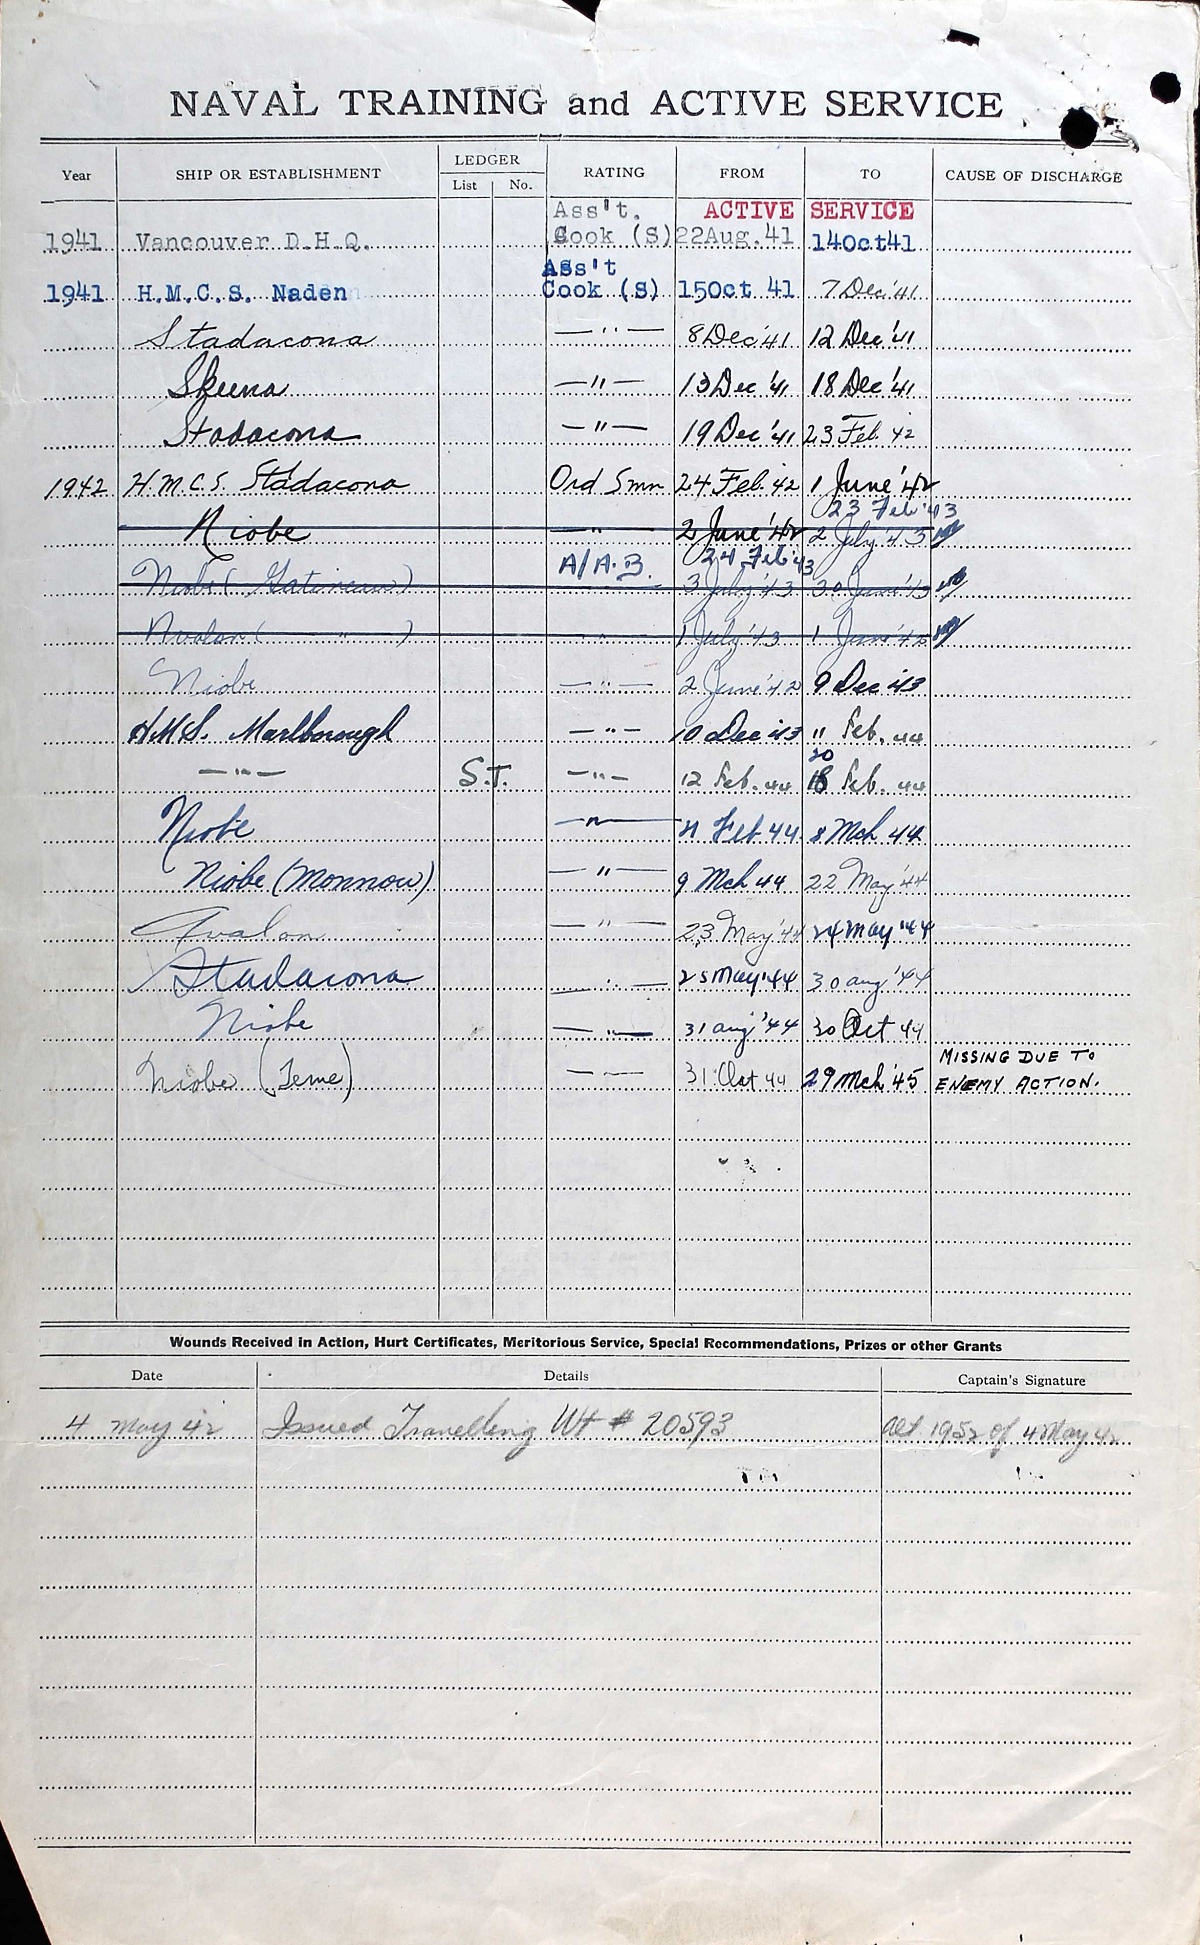 NAVAL TRAINING and ACTIVE SERVICE
Year SHIP OR ESTABLISHMENT LEDGER List No. RATING FROM TO CAUSE OF DISCHARGE
Ass't. ACTIVE SERVICE
1941 Vancouver D.H.Q. Cook (S) 22Aug.41 14Oct41
Ass't
1941 H.M.C.S. Naden Cook (S) 15Oct 41 7 Dec '41
Stadacona —"— 8 Dec '41 12 Dec '41
Skeena —"— 13 Dec '41 18 Dec '41
Stadacona —"— 19 Dec '41 23 Feb. 42
1942 H.M.C.S. Stadacona Ord Smn 24 Feb. 42 1 June '42
23 Feb '43
Niobe " 2 June '42 2 July '43
A/A.B. 24 Feb '43
Niobe (Gatineau) 3 July '43 30 June '43
Avalon ( " ) " 1 July '43 1 June '42
Niobe —"— 2 June '42 9 Dec '43
H.M.S. Marlborough —"— 10 Dec 43 11 Feb. 44
20
—"— S.T. —"— 12 Feb. 44 18 Feb. 44
Niobe —"— 21 Feb 44. 8 Mch 44
Niobe (Monnow) —"— 9 Mch 44 22 May '44
Avalon —"— 23 May '44 24 May '44
Stadacona —"— 25 May '44 30 Aug '44
Niobe —"— 31 Aug '44 30 Oct 44
MISSING DUE TO
Niobe (Teme) —"— 31 Oct 44 29 Mch '45 ENEMY ACTION.
Wounds Received in Action, Hurt Certificates, Meritorious Service, Special Recommendations, Prizes or other Grants
Date Details Captain's Signature
4 May 42 Issued Travelling Wt # 20593 1952 of 4 May 42